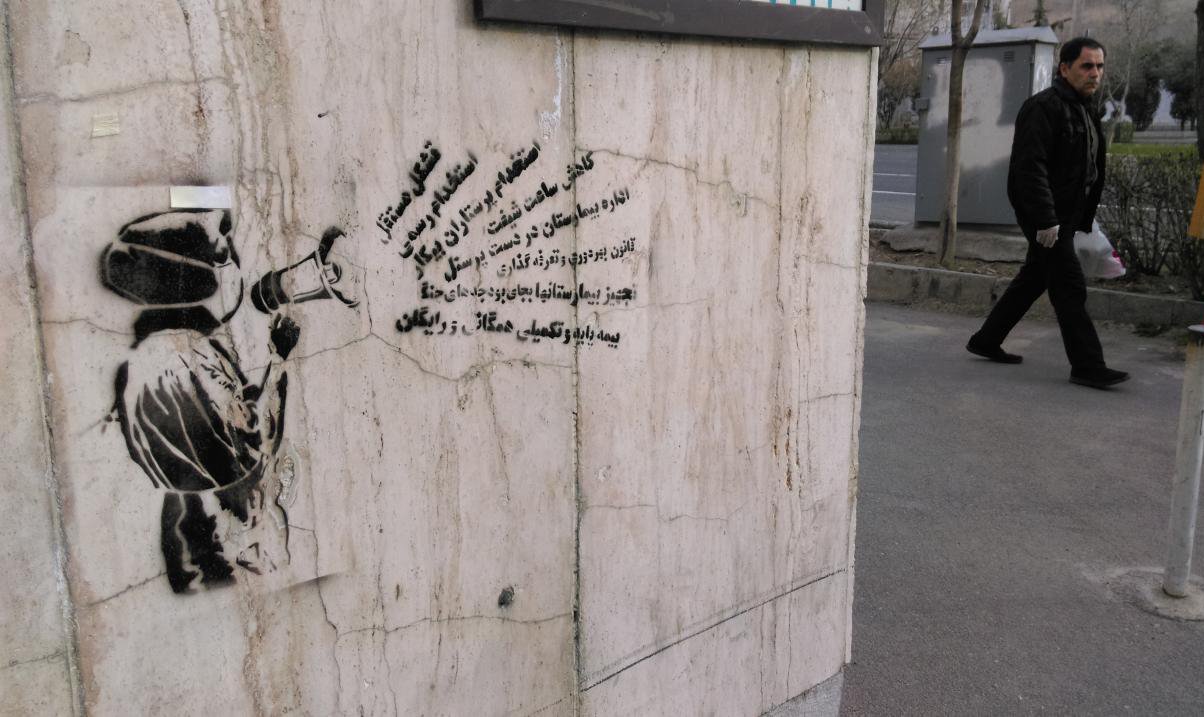 تشکل مستقل
استخدام رسمی
استخدام پرستاران بیکار
کاهش ساعت شیفت
اداره بیمارستان در دست پرسنل
قانون بهره‌وری و تعرفه گذاری
تجهیز بیمارستانها بجای بودجه‌های جنگ
بیمه پایه و تکمیلی همگانی و رایگان